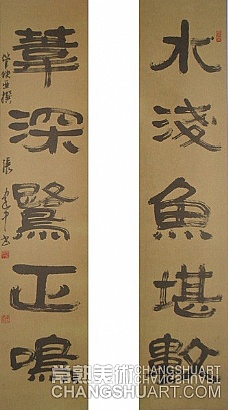 水淺魚堪數
葦深鷖正鳴
張建中書
常熟美術
CHANGSHUART.COM
CHANGSHUART.COM